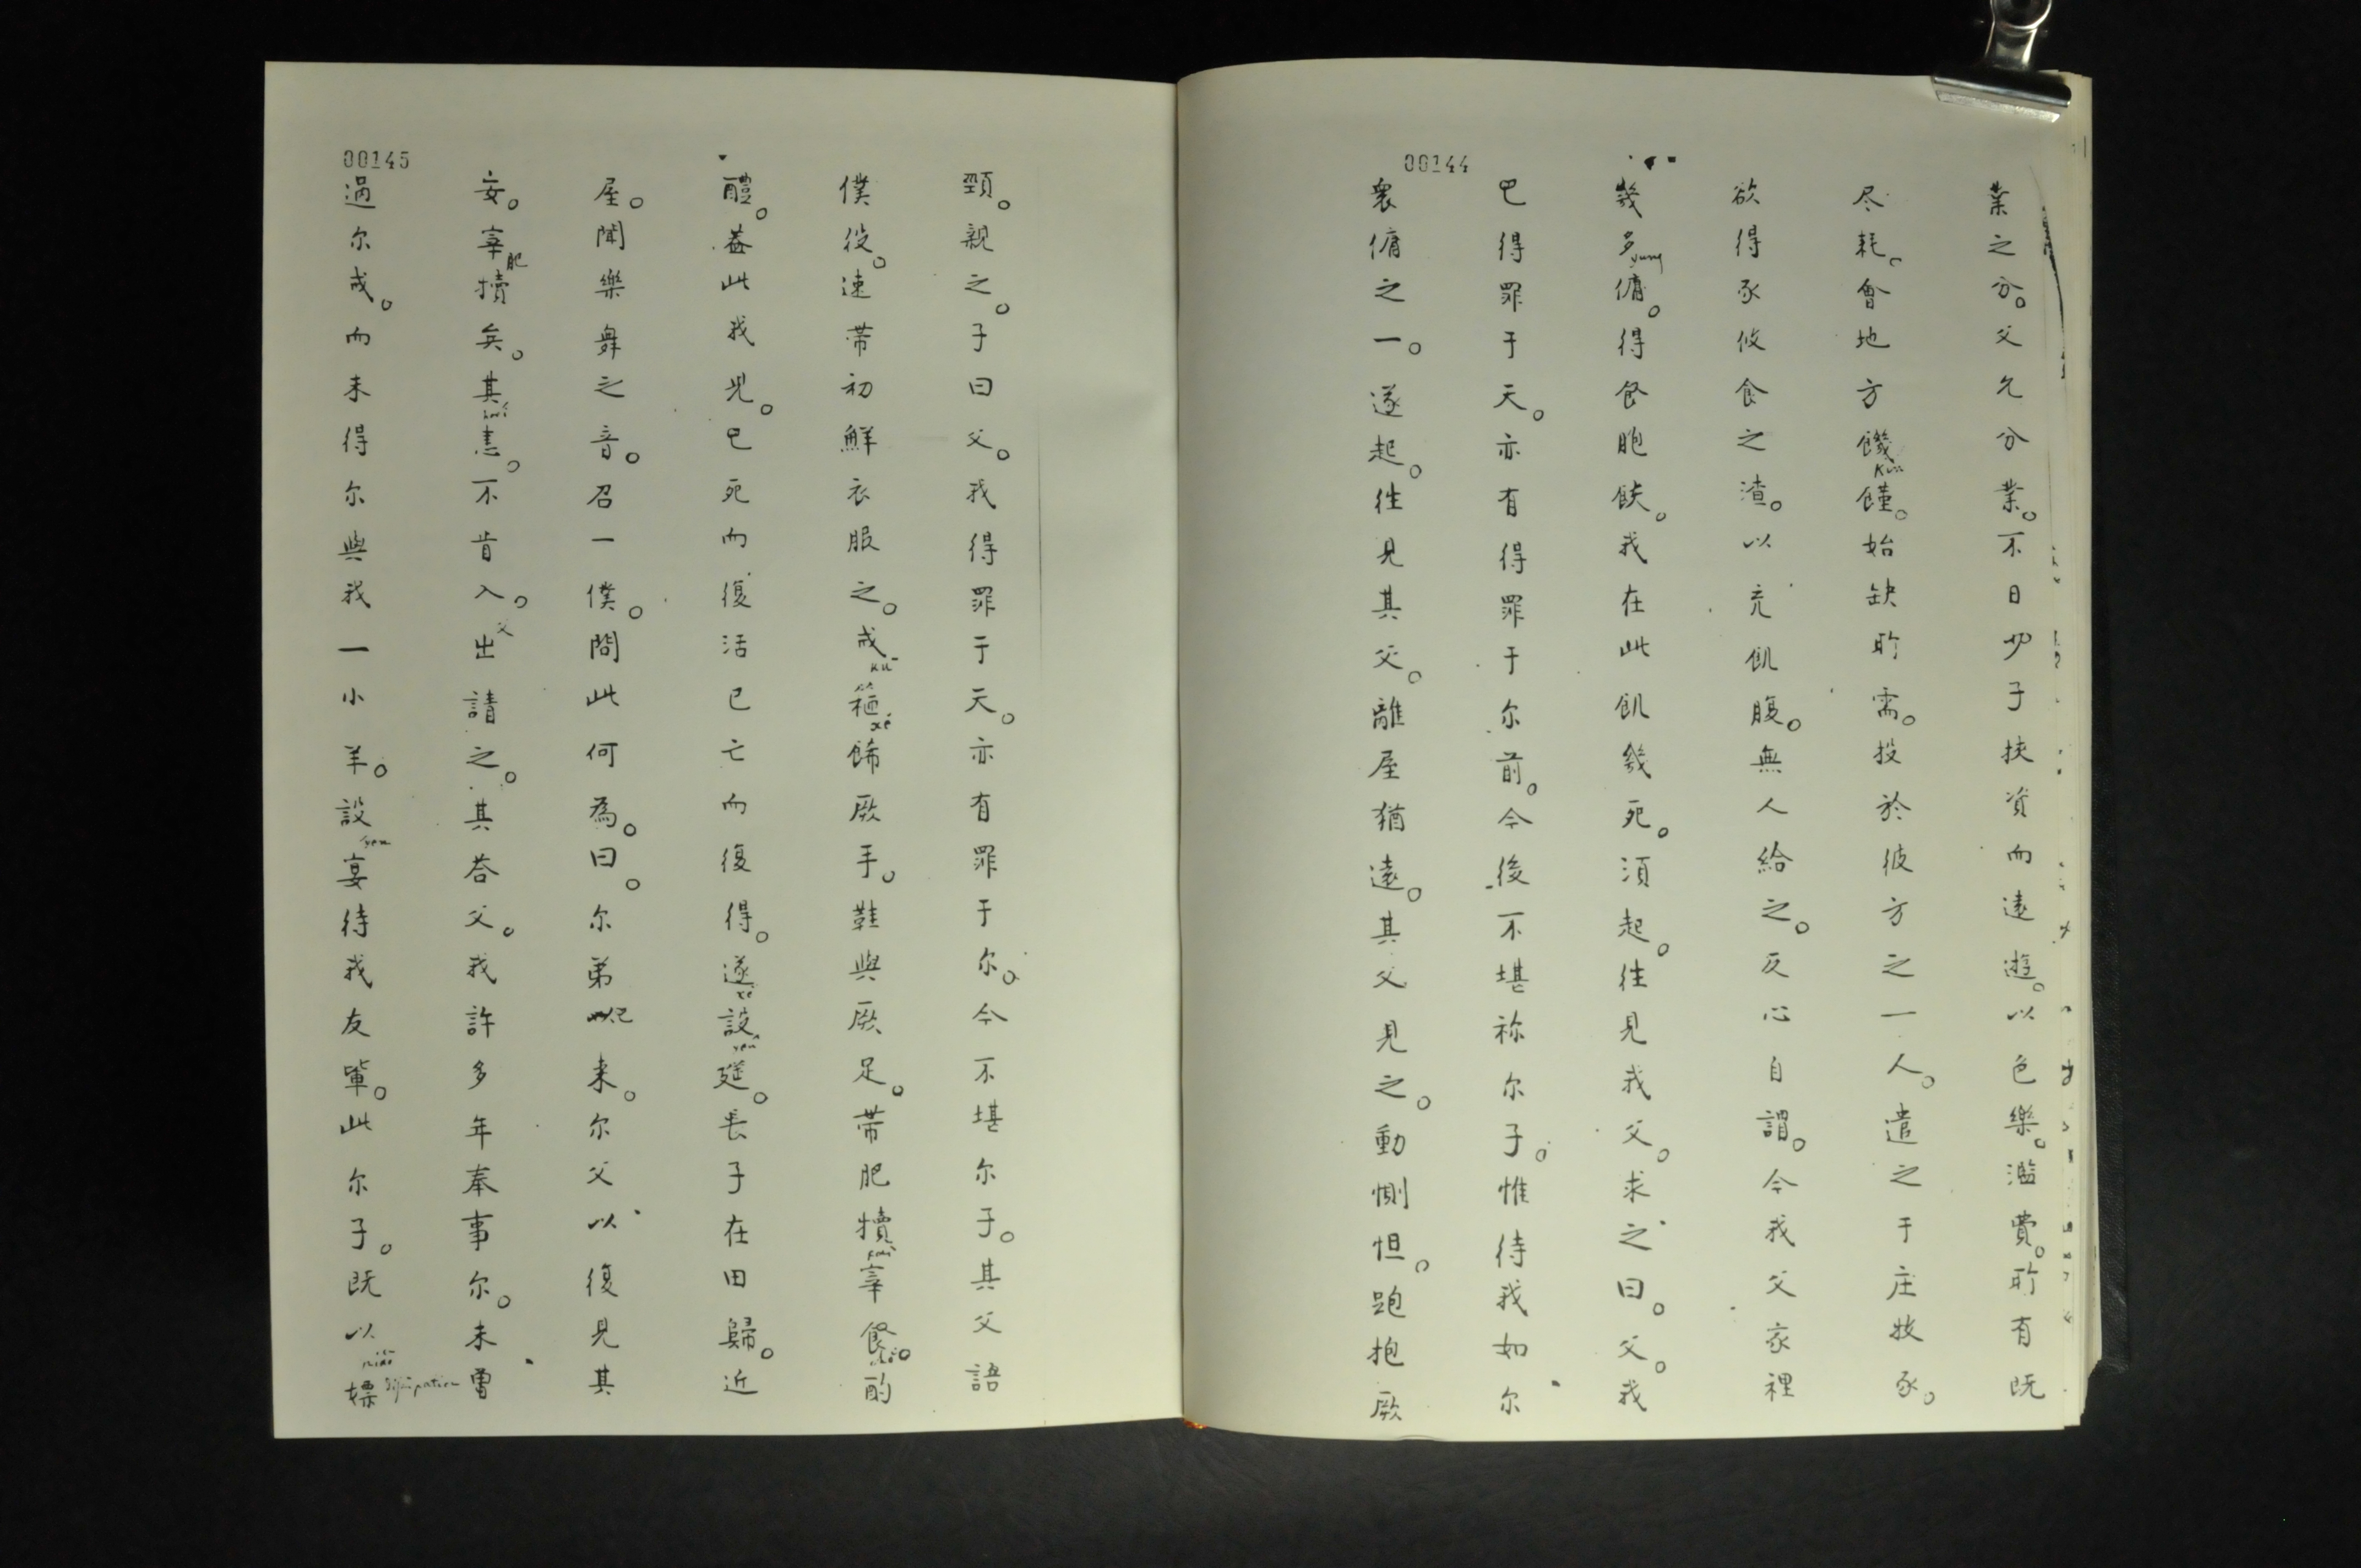 00144
業之分。父允分業。不日少子挾資而遠遊。以色樂。濫費。所有既
尽耗。會地方饑饉。始缺所需。投於彼方之一人。遣之于庄牧豕。
欲得豕攸食之渣。以充飢腹。無人給之。反心自謂。今我父家裡
幾多傭。得食胞飫。我在此飢幾死。須起。往見我父。求之曰。父。我
巳得罪于天。亦有得罪于尔前。今後不堪祢尔子。惟待我如尔
衆傭之一。遂起。往見其父。離屋猶遠。其父見之。動惻怛。跑抱厥
00145
頸。親之。子曰父。我得罪于天。亦有罪于尔。今不堪尔子。其父語
僕役。速帯初鮮衣服之。戒飾厥手。鞋與厥足。帯肥犢宰餐。酌
醴。葢此我児。巳死而復活巳亡而復得。遂設筵。長子在田歸。近
屋。聞樂舞之音。召一僕。問此何為。曰。尔弟已来。尔父以復見其
安。宰肥犢矣。其恚。不肯入。父出請之。其荅父。我許多年奉事尔。未曽
過尔戒。而未得尔與我一小羊。設宴待我友輩。此尔子。既以嫖
yung
Kin
xi
yen
dissipation